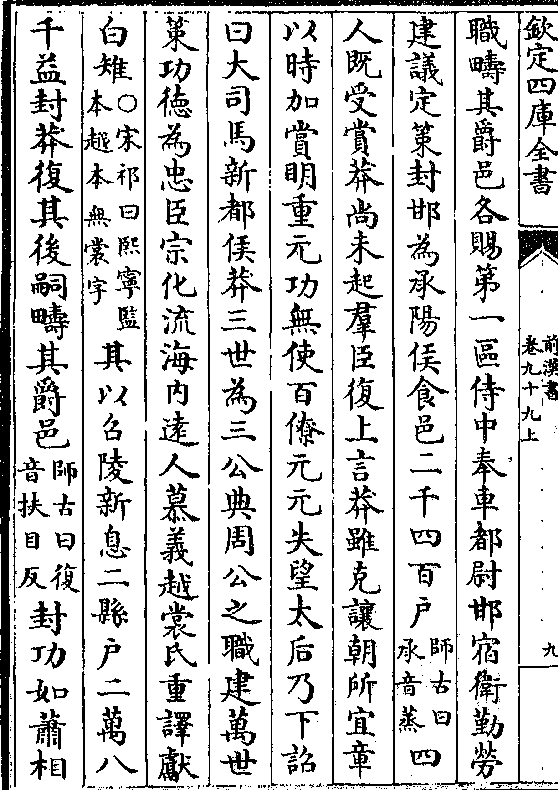 欽定四庫全書
前漢書
卷九十九上
九
職疇其爵邑各賜第一區侍中奉車都尉邯宿衛勤勞
建議定策封邯為承陽侯食邑二千四百户師古曰承音蒸四
人既受賞莽尚未起羣臣復上言莽雖克讓朝所宜章
以時加賞明重元功無使百僚元元失望太后乃下詔
曰大司馬新都侯莽三世為三公典周公之職建萬世
策功徳為忠臣宗化流海内逺人慕義越裳氏重譯獻
白雉○宋祁曰熙寧監本越本無裳字其以召陵新息二縣户二萬八
千益封莽復其後嗣疇其爵邑師古曰復音扶目反封功如蕭相